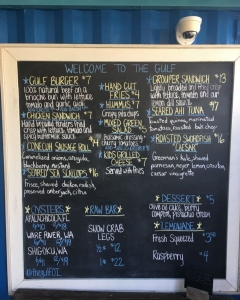 WELCOME TO THE GULF
GULF BURGER $7
100% natural beef on a
brioche bun with lettuce
tomato and garlic aioli
CHICKEN SANDWICH $7
Hand breaded tenders fried
with lettuce, tomato and
spicy buttermilk sauce
CONECUH SAUSAGE ROLL $4
Caramelized onions, arugula,
blackberry mustard
SEARED SEA SCALLOPS $16
Frisee, shaved radish,
preserved
HAND CUT
FRIES $4
HUMMUS $7
Crispy pita chips
MIXED GREEN
SALAD
Balsamic dressing
cherry tomatoes
KIDS GRILLED
$7
Served with fries
GROUPER SANDWICH $13
Lightly breaded and fried crisp
with lettuce, tomato and our
lemon dill sauce
SEARED AHI TUNA $7
Roasted quinoa, marinated
tomatoes, roasted bok choy
ROASTED SWORDFISH $16
CAESAR
Greenleaf & kale, shaved
parmesan, heart lemon, croutons
caesar vinaigrette
OYSTERS
APALACHICOLA, FL
WARE RIVER, VA
SHIGOKU, WA
@thegulfOT
RAW BAR
SNOW CRAB
LEGS
½# $12
1# $22
DESSERT $5
Olive oil cake, berry
compote, pistachio cream
LEMONADE
Fresh Squeezed $3.50
Raspberry $4